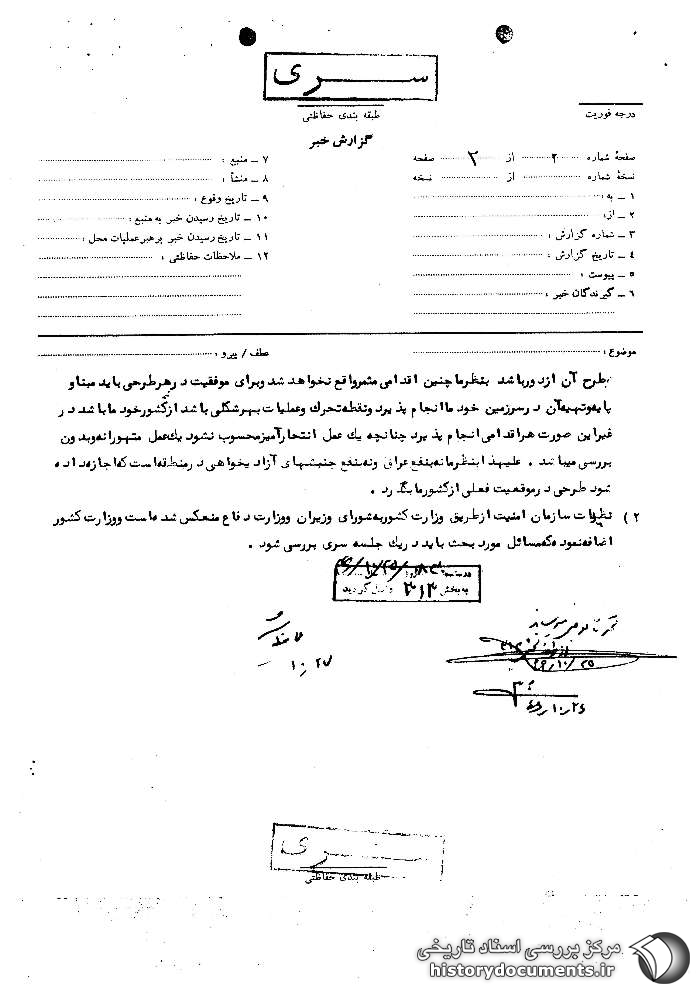 سری
طبقه بندی حفاظتی
درجه فوریت
گزارش خبر
صفحهٔ شماره ۲ از ۳ صفحه
نسخهٔ شماره از نسخه
۱ ـ به :
۲ ـ از:
۳ ـ شماره گزارش :
۴ ـ تاریخ گزارش :
۵ ـ پیوست :
۶ ـ گیرندگان خبر :
۷ ـ منبع :
۸ ـ منشأ :
۹ ـ تاریخ وقوع :
۱۰ ـ تاریخ رسیدن خبر به منبع :
۱۱ ـ تاریخ رسیدن خبر برهبر عملیات محل :
۱۲ ـ ملاحظات حفاظتی :
موضوع :
عطف / پیرو :
طرح آن ازدورباشد بنظرما چنین اقدامی مثمرواقع نخواهد شد وبرای موفقیت درهرطرحی باید مبنا و
پایه‌وتهیه‌آن درسرزمین خود ما انجام پذیرد ونقطه‌تحرک وعملیات بهرشکلی باشد ازکشورخود ما باشد در
غیراین صورت هراقدامی انجام پذیرد چنانچه یک عمل انتحارآمیزمحسوب نشود یک‌عمل متهورانه‌وبدون
بررسی میباشد . علیهذا بنظرمانه‌بنفع عراق ونه‌بنفع جنبشهای آزادیخواهی درمنطقه‌است که‌اجازه‌داده
شود طرحی درموقعیت فعلی ازکشورما بگذرد .
۲ ) نظریات سازمان امنیت ازطریق وزارت کشوربه‌شورای وزیران ووزارت دفاع منعکس شده‌است ووزارت کشور
اضافه‌نموده‌که‌مسائل مورد بحث باید دریک جلسه سری بررسی شود .
به‌بخش ۳۱۲ واصل گردید
۱۰/۲۷
۴۹/۱۰/۲۵
۴۹/۱۰/۲۴
سری
طبقه بندی حفاظتی
مرکز بررسی اسناد تاریخی
historydocuments.ir